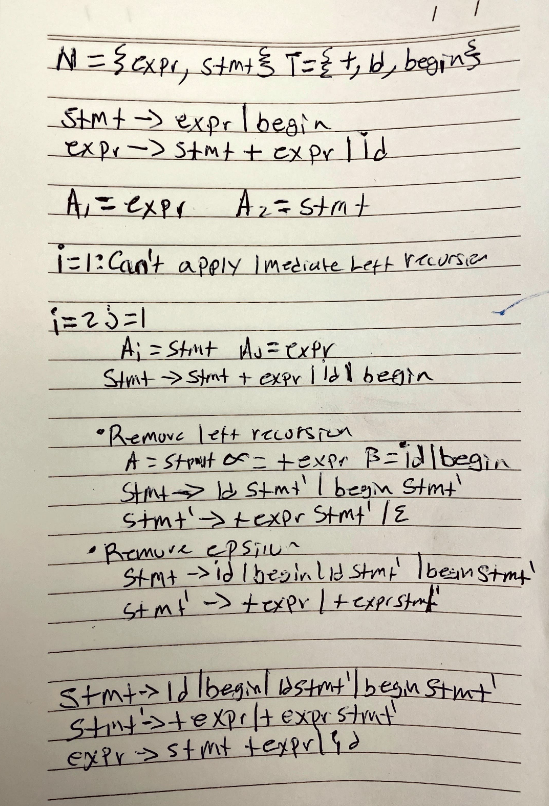 N = {expr, stmt} T = {+, id, begin}
stmt -> expr | begin
expr -> stmt + expr | id
A₁ = expr A₂ = stmt
i=1: Can't apply imediate Left recursion
i=2 j=1
Ai = stmt Aj = expr
Stmt -> Stmt + expr | id | begin
• Remove left recursion
A = stmt α = +expr β = id | begin
Stmt -> id stmt' | begin stmt'
stmt' -> +expr stmt' | ε
• Remove epsilon
Stmt -> id | begin | id stmt' | begin stmt'
stmt' -> +expr | +expr stmt'
Stmt -> id | begin | id stmt' | begin stmt'
Stmt' -> +expr | +expr stmt'
expr -> stmt +expr | id